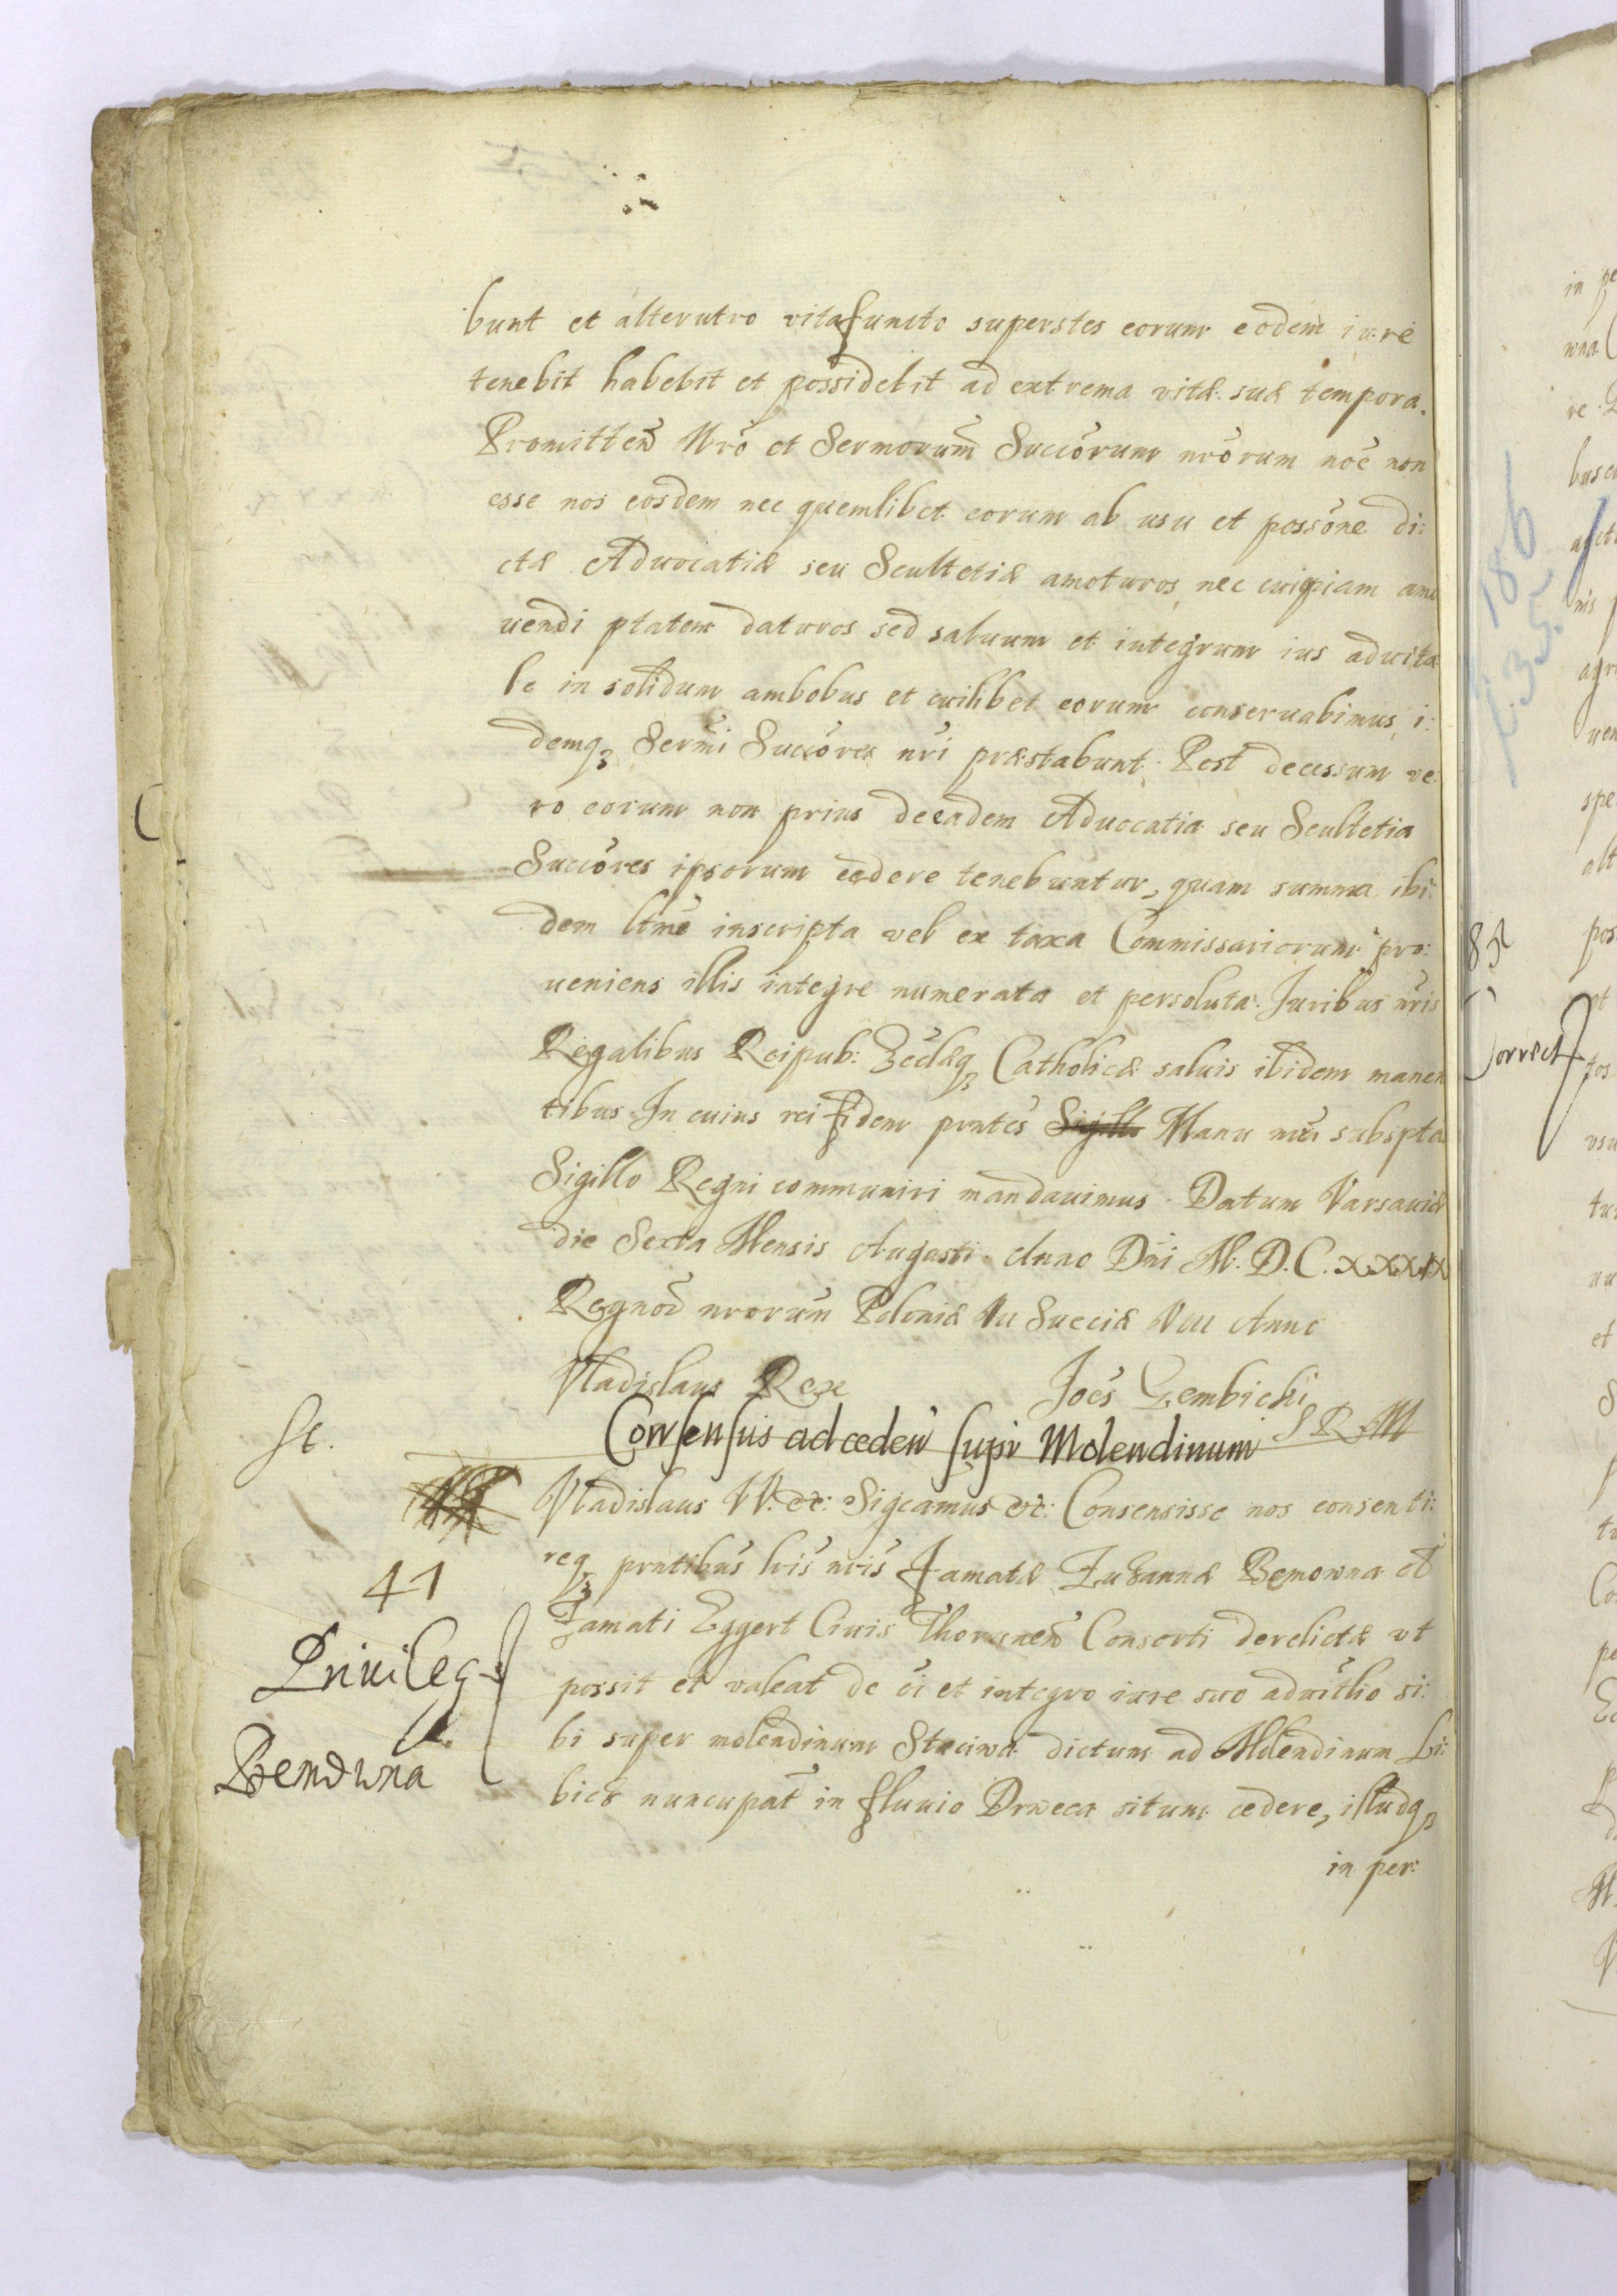 bunt et alterutro vita functo superstes eorum eodem iure
tenebit habebit et possidebit ad extrema vitæ suæ tempora.
Promitten Nrō et Sermorum Succōrum nrōrum noē non
esse nos eosdem nec quemlibet eorum ab usu et possōne di:
ctæ Advocatiæ seu Scultetiæ amoturos, nec cuipiam amo
uendi ptatem daturos sed saluum et integrum ius aduita
le in solidum ambobus et cuilibet eorum conseruabimus, i:
demq3 Sermi Succōres nri præstabunt. Post decessum ve:
ro eorum non prius de eadem Aduocatia seu Scultetia
Succōres ipsorum cedere tenebuntur, quam summa ibi:
dem ltme inscripta vel ex taxa Commissariorum pro:
ueniens illis integre numerata et persoluta. Iuribus nris
Regalibus Reipub: Ecclæq3 Catholicæ saluis ibidem manen
tibus. In cuius rei fidem pntes Sigillo Manu nra subspta
Sigillo Regni communiri mandauimus. Datum Varsauiæ
die Sexta Mensis Augusti Anno Dni M. D. C. XXXIX
Regnoꝝ nrorum Poloniæ VII Sueciæ VIII Anno
Vladislaus Rex Joēs Gembicki
S R M
Sc. Consensus ad ceden supr Molendinum
Vladislaus IV. etc: Sigcamus etc: Consensisse nos consenti:
req3 prntibus lris nris Famatæ Zuzannæ Bemowna et
41
Famati Eggert Ciuis Thorunen Consorti derelictæ vt
Priuileg
possit et valeat de oi et integro iure suo aduitlio si:
bi super molendinum Staciwa dictum ad Molendinum Li:
Bemowna
bicz nuncupat in fluuio Drweca situm cedere, illudq3
in per: